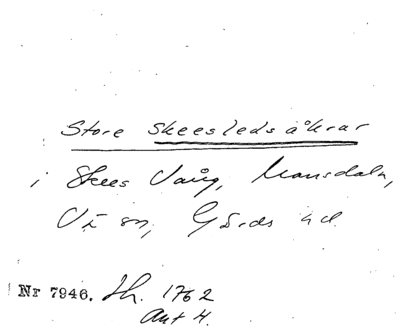 Store Skeesleds åkrar
i Skees Vång, Mansdala,
Vä sn, Gärds hd.
Nr 7946. Sh. 1762
Akt 4.